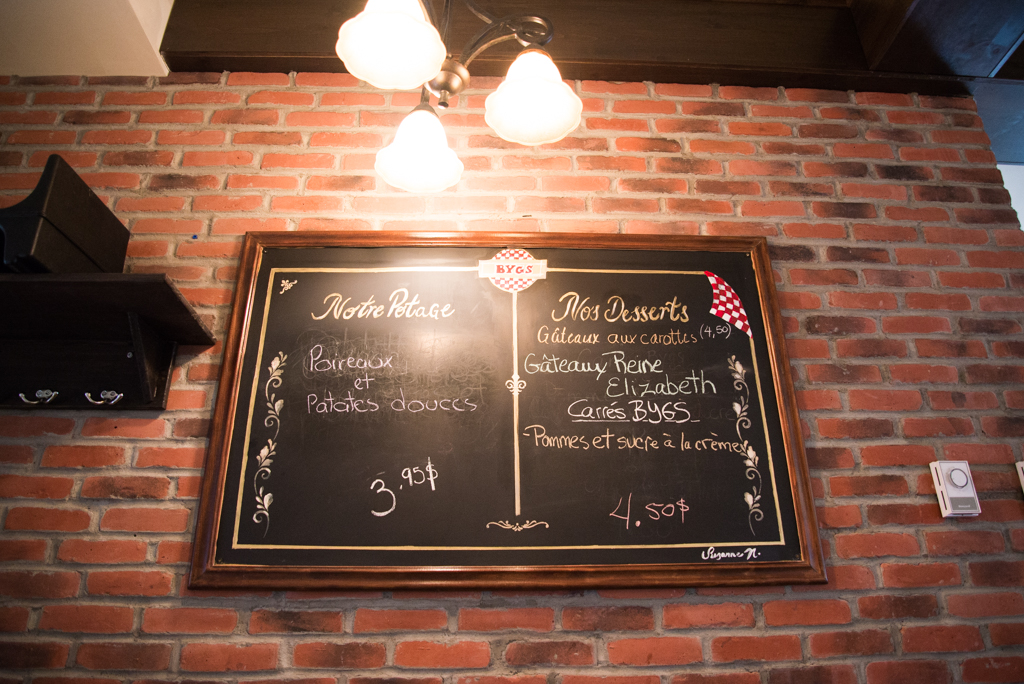 BYGS
Notre Potage
Poireaux
et
Patates douces
3.95$
Nos Desserts
Gâteaux aux carottes (4,50)
Gâteaux Reine
Elizabeth
Carrés BYGS
-Pommes et sucre à la crème
4.50$
Suzanne N.